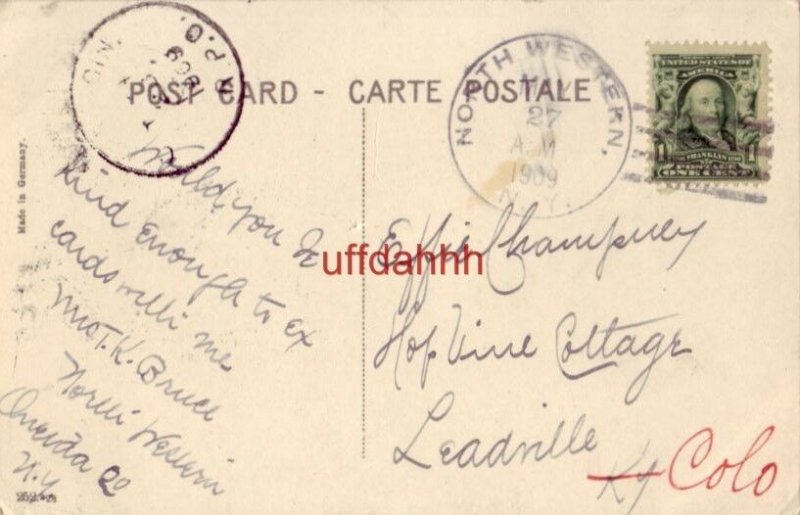 POST CARD - CARTE POSTALE
Made in Germany.
R.P.O.
1909
NORTH WESTERN,
27
A M
1909
N.Y.
UNITED STATES OF
AMERICA
1 1
FRANKLIN
POSTAGE
ONE CENT
Would you be
kind enough to ex
cards with me
Mrs T. K. Bruce
North Western
Oneida Co
N.Y
uffdahhh
Effie Champney
Hop Vine Cottage
Leadville
Ky Colo